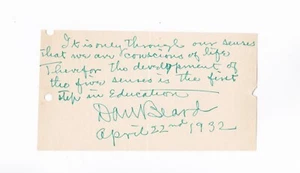 It is only through our senses
that we are conscious of life
Therefor the development of
the five senses is the first
step in Education
Dan Beard
April 22nd 1932